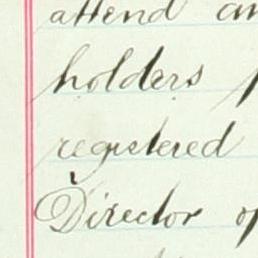 attend an
holders
registered
Director of